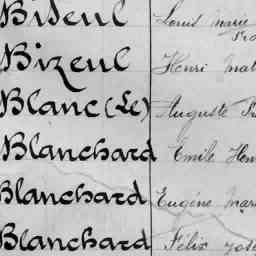 Bideul Louis Marie
Bizeul Henri Mat
Blanc (Le) Auguste
Blanchard Emile Hen
Blanchard Eugène Mar
Blanchard Félix José